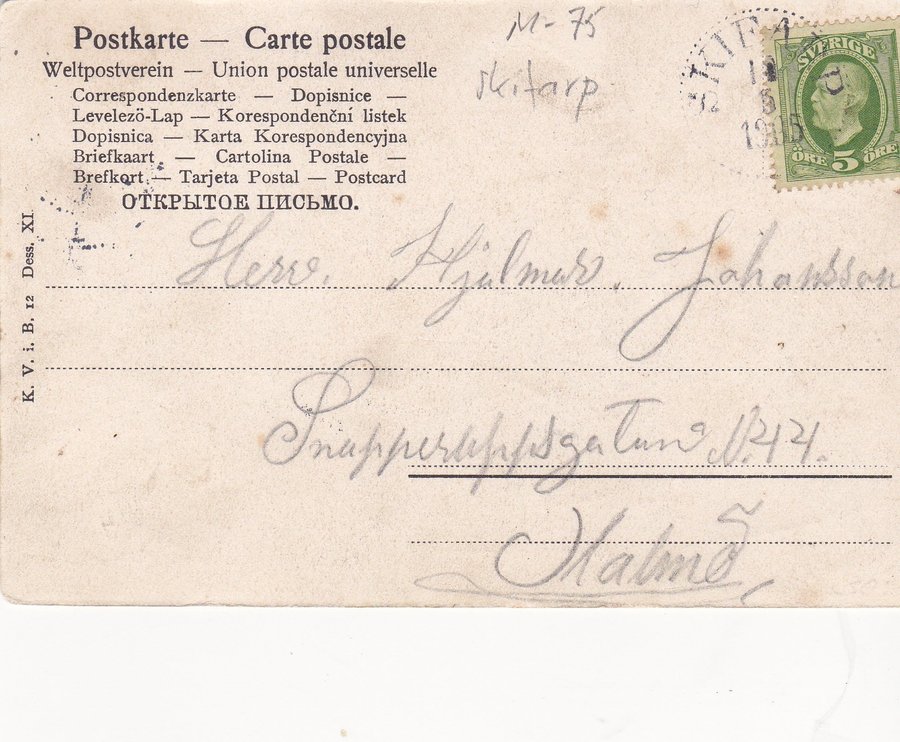 Postkarte — Carte postale
Weltpostverein — Union postale universelle
Correspondenzkarte — Dopisnice —
Levelező-Lap — Korespondenční listek
Dopisnica — Karta Korespondencyjna
Briefkaart — Cartolina Postale —
Brefkort — Tarjeta Postal — Postcard
ОТКРЫТОЕ ПИСЬМО.
M-75
skitarp
SVERIGE
ÖRE 5 ÖRE
K. V. i. B. 12 Dess. XI.
Herr. Hjalmar. Johansson
N.44.
Malmö